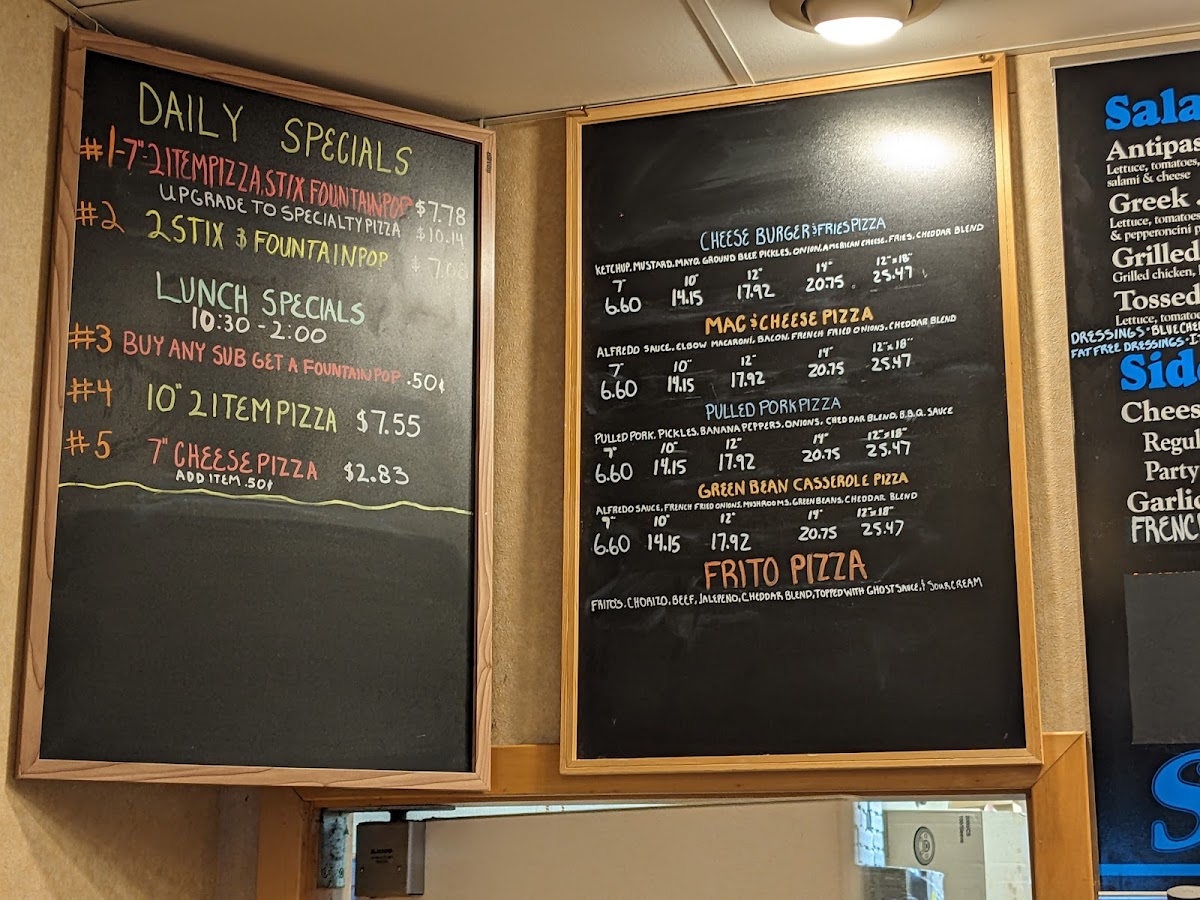 DAILY SPECIALS
#1-7"-2 ITEM PIZZA. STIX FOUNTAIN POP $7.78
UPGRADE TO SPECIALTY PIZZA $10.14
#2 2 STIX & FOUNTAIN POP
LUNCH SPECIALS
10:30 - 2:00
#3 BUY ANY SUB GET A FOUNTAIN POP .50¢
#4 10" 2 ITEM PIZZA $7.55
#5 7" CHEESE PIZZA $2.83
ADD ITEM .50¢
CHEESE BURGER & FRIES PIZZA
KETCHUP, MUSTARD, MAYO, GROUND BEEF, PICKLES, ONION, AMERICAN CHEESE, FRIES, CHEDDAR BLEND
7" 10" 12" 14" 12"x18"
6.60 14.15 17.92 20.75 25.47
MAC & CHEESE PIZZA
ALFREDO SAUCE, ELBOW MACARONI, BACON, FRENCH FRIED ONIONS, CHEDDAR BLEND
7" 10" 12" 14" 12"x18"
6.60 14.15 17.92 20.75 25.47
PULLED PORK PIZZA
PULLED PORK, PICKLES, BANANA PEPPERS, ONIONS, CHEDDAR BLEND, B.B.Q. SAUCE
7" 10" 12" 14" 12"x18"
6.60 14.15 17.92 20.75 25.47
GREEN BEAN CASSEROLE PIZZA
ALFREDO SAUCE, FRENCH FRIED ONIONS, MUSHROOMS, GREEN BEANS, CHEDDAR BLEND
10" 12" 14" 12"x18"
6.60 14.15 17.92 20.75 25.47
FRITO PIZZA
FRITO'S, CHORIZO, BEEF, JALEPENO, CHEDDAR BLEND, TOPPED WITH GHOST SAUCE, & SOUR CREAM
Sala
Antipas
Lettuce, tomatoes,
salami & cheese
Greek
Lettuce, tomatoes
& pepperoncini p
Grilled
Grilled chicken,
Tossed
Lettuce, tomatoe
DRESSINGS • BLUE CHE
FAT FREE DRESSINGS • I
Side
Chees
Regul
Party
Garlic
FRENC
S